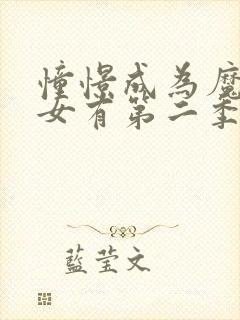 憧憬成為魔
女有第二季
藍莹文